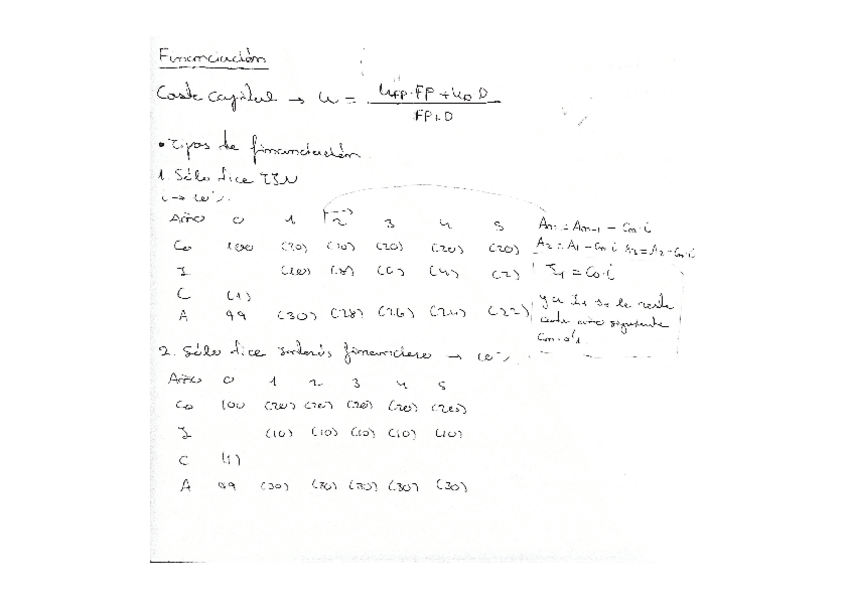 Financiación
Coste capital → k = (k_FP · FP + k_D · D) / (FP + D)
• Tipos de financiación
1. Sólo dice TIN
i → 10%
Año 0 1 2 3 4 5
Co 100 (20) (20) (20) (20) (20)
I (10) (8) (6) (4) (2)
C (1)
A 99 (30) (28) (26) (24) (22)
An = An-1 - Cn·i
A2 = A1 - Cn·i A3 = A2 - Cn·i
I1 = Co·i
y a I1 se le resta
cada año siguiente
Cn·0'1
2. Sólo dice interés financiero → 10%
Año 0 1 2 3 4 5
Co 100 (20) (20) (20) (20) (20)
I (10) (10) (10) (10) (10)
C (1)
A 99 (30) (30) (30) (30) (30)